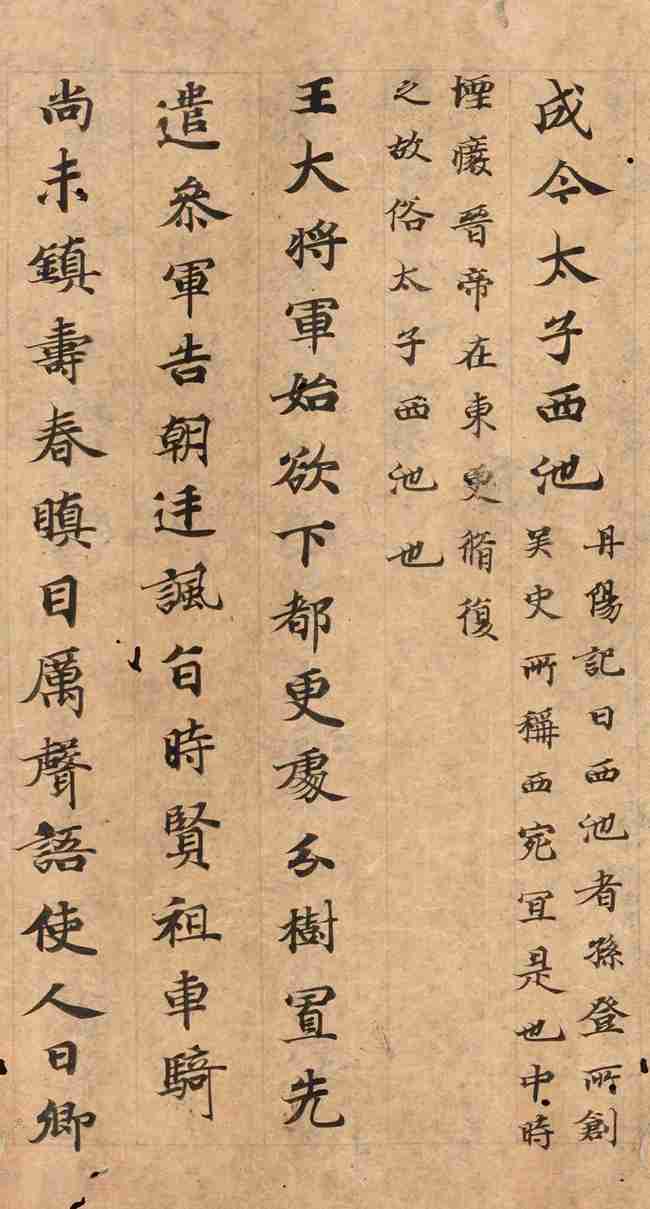 成今太子西池
丹陽記曰西池者孫登所創
吴史所稱西宛冝是也中時
堙癈晉帝在東更脩復
之故俗太子西池也
王大將軍始欲下都更處分樹置先
遣叅軍告朝廷諷旨時賢祖車騎
尚未鎮壽春瞋目厲聲語使人曰卿